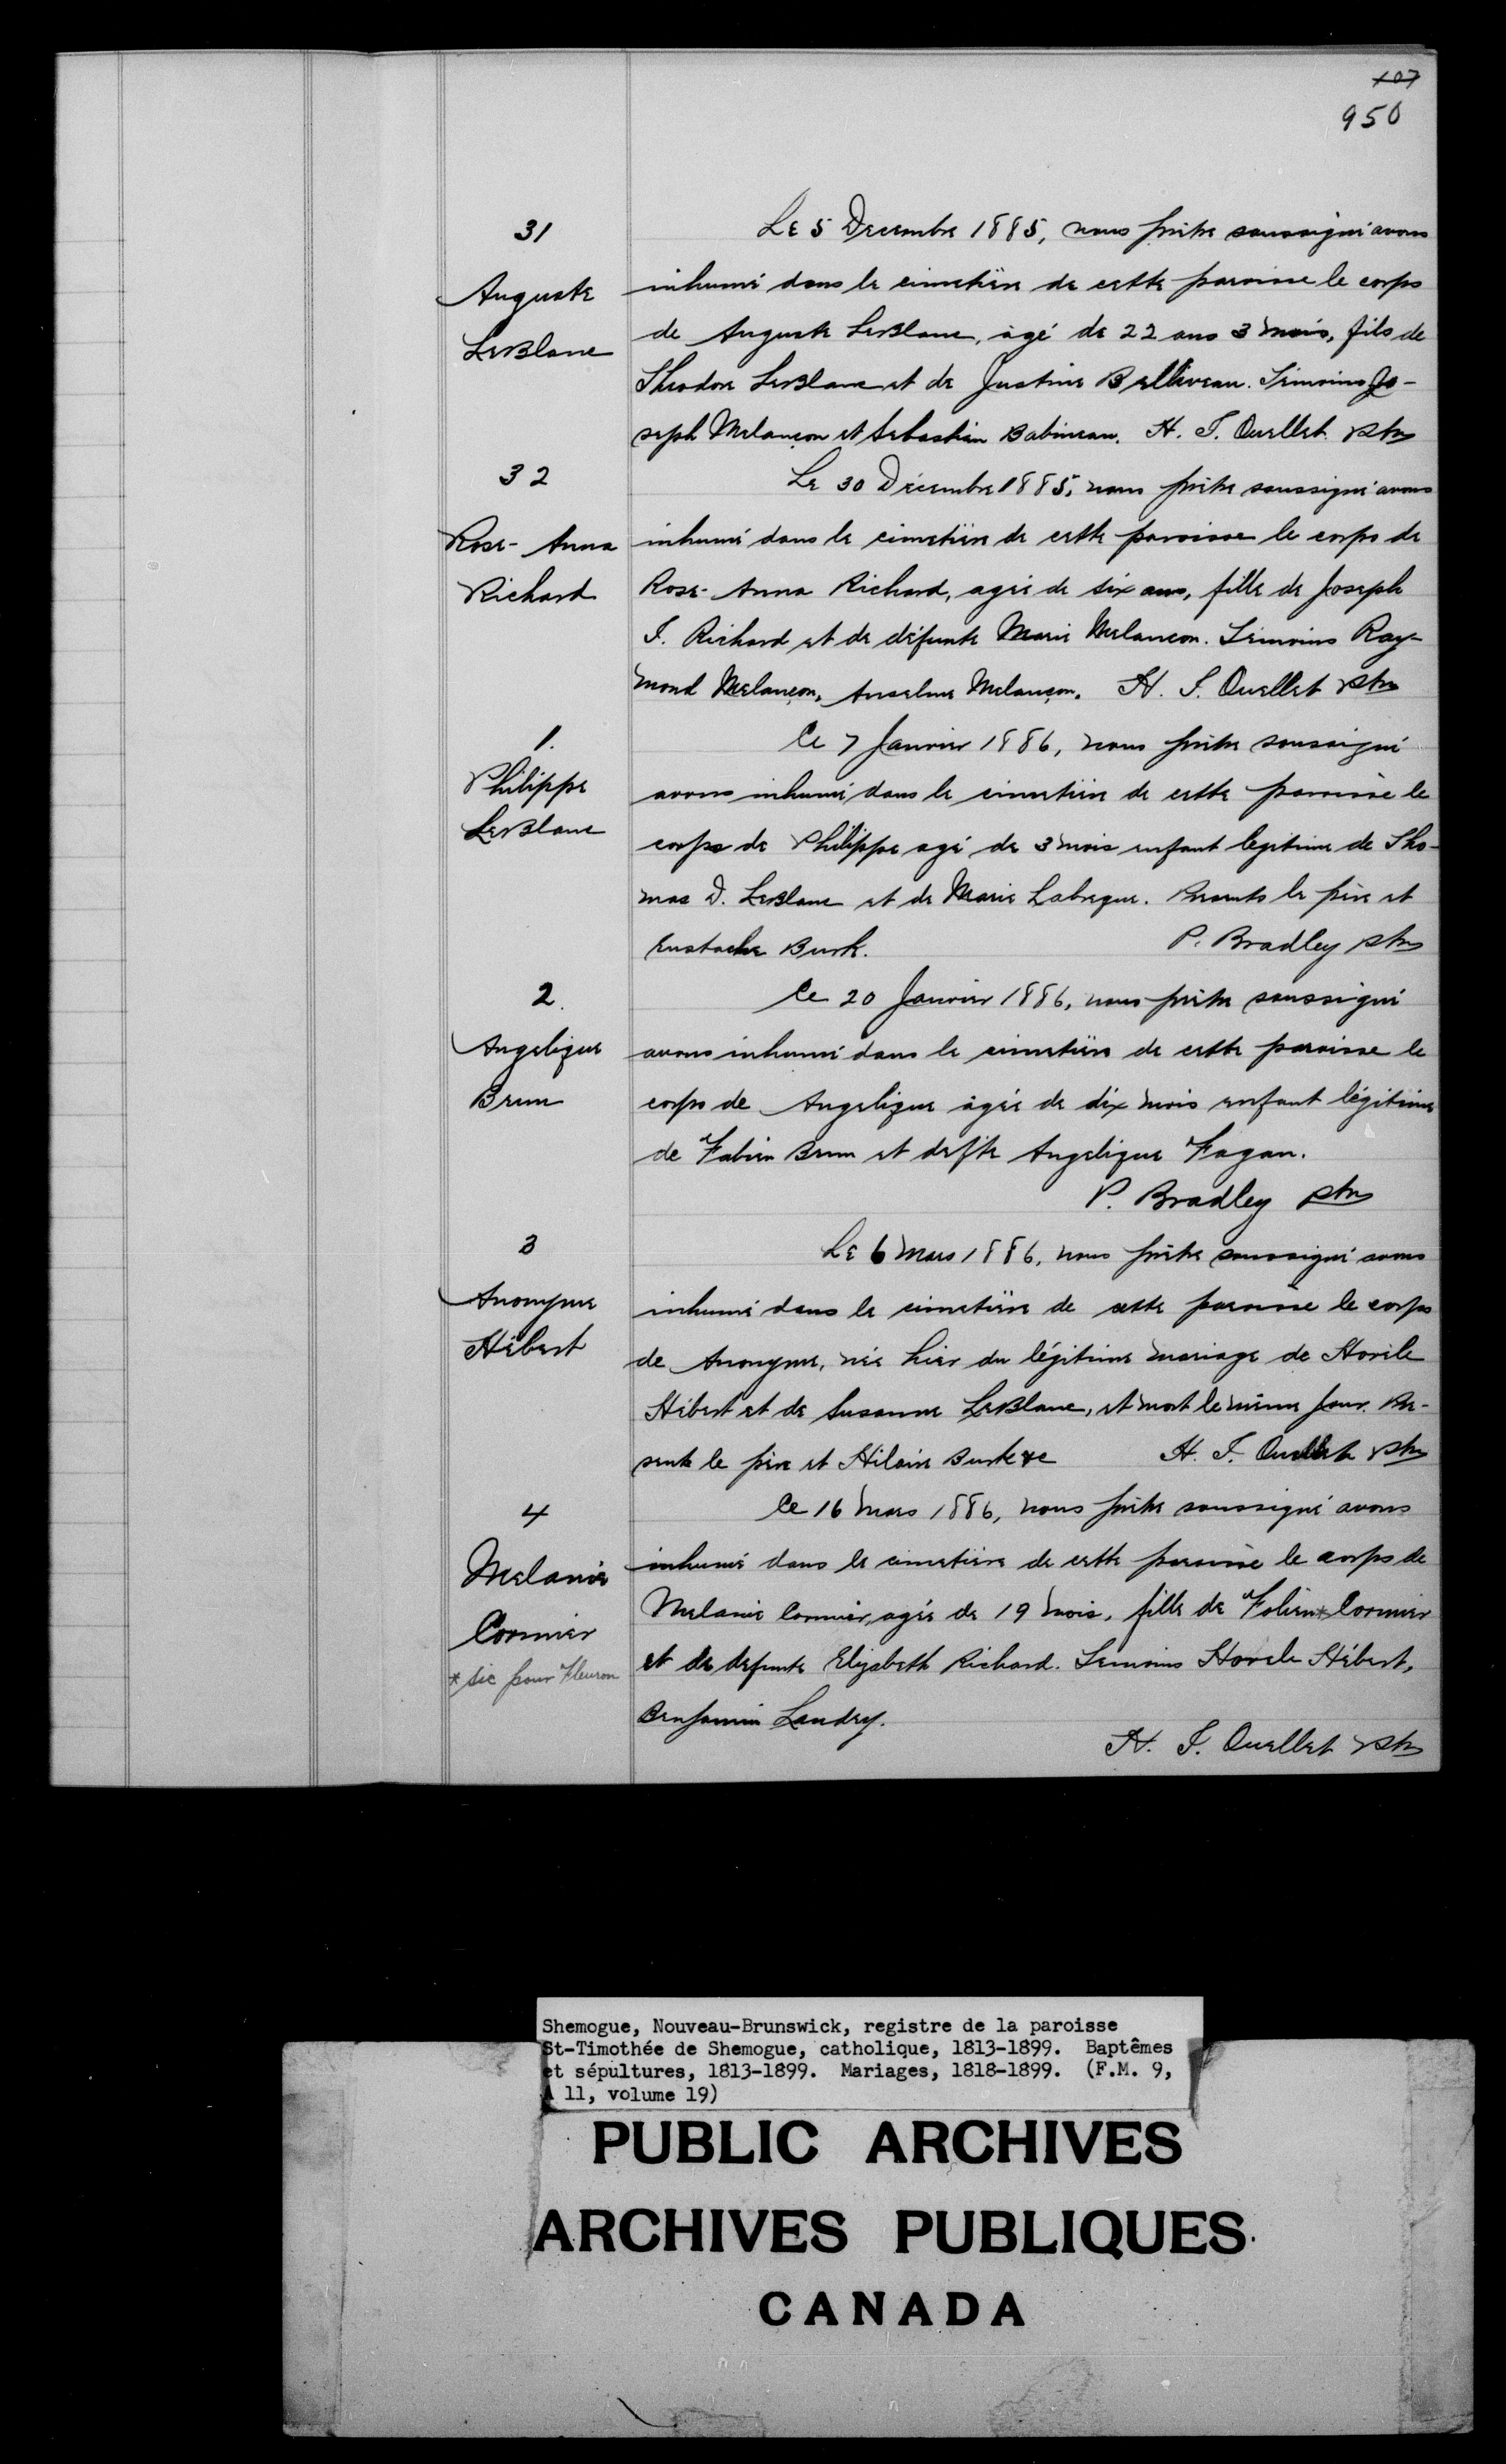 107
950
31
Auguste
LeBlanc
Le 5 Decembre 1885, nous prêtre soussigné avons
inhumé dans le cimetière de cette paroisse le corps
de Auguste LeBlanc, âgé de 22 ans 3 mois, fils de
Theodore LeBlanc et de Justine Belliveau. Témoins Jo-
seph Melançon et Sebastien Babineau. H. T. Ouellet ptre
32
Rose-Anna
Richard
Le 30 Décembre 1885, nous prêtre soussigné avons
inhumé dans le cimetière de cette paroisse le corps de
Rose-Anna Richard, agée de six ans, fille de Joseph
T. Richard et de défunte Marie Melancon. Témoins Ray-
mond Melançon, Anselme Melançon. H. T. Ouellet ptre
1.
Philippe
LeBlanc
Ce 7 Janvier 1886, nous prêtre soussigné
avons inhumé dans le cimetière de cette paroisse le
corps de Philippe agé de 3 mois enfant legitime de Tho-
mas D. LeBlanc et de Marie Labreque. Presents le père et
Eustache Burk. P. Bradley ptre
2.
Angelique
Brun
Ce 20 Janvier 1886, nous prêtre soussigné
avons inhumé dans le cimetière de cette paroisse le
corps de Angelique âgée de dix mois enfant légitime
de Fabien Brun et defte Angelique Fagan.
P. Bradley ptre
3
Anonyme
Hébert
Le 6 Mars 1886, nous prêtre soussigné avons
inhumé dans le cimetière de cette paroisse le corps
de Anonyme, née hier du légitime mariage de Honile
Hébert et de Susanne LeBlanc, et mort le même jour. Pre-
sents le père et Hilaire Burke &c H. T. Ouellet ptre
4
Melanie
Cormier
*sic pour Fleuron
Ce 16 Mars 1886, nous prêtre soussigné avons
inhumé dans le cimetière de cette paroisse le corps de
Melanie Cormier, agée de 19 mois, fille de Folien* Cormier
et de defunte Elizabeth Richard. Temoins Honile Hébert,
Benjamin Landry.
H. T. Ouellet ptre
Shemogue, Nouveau-Brunswick, registre de la paroisse
St-Timothée de Shemogue, catholique, 1813-1899. Baptêmes
et sépultures, 1813-1899. Mariages, 1818-1899. (F.M. 9,
A 11, volume 19)
PUBLIC ARCHIVES
ARCHIVES PUBLIQUES
CANADA